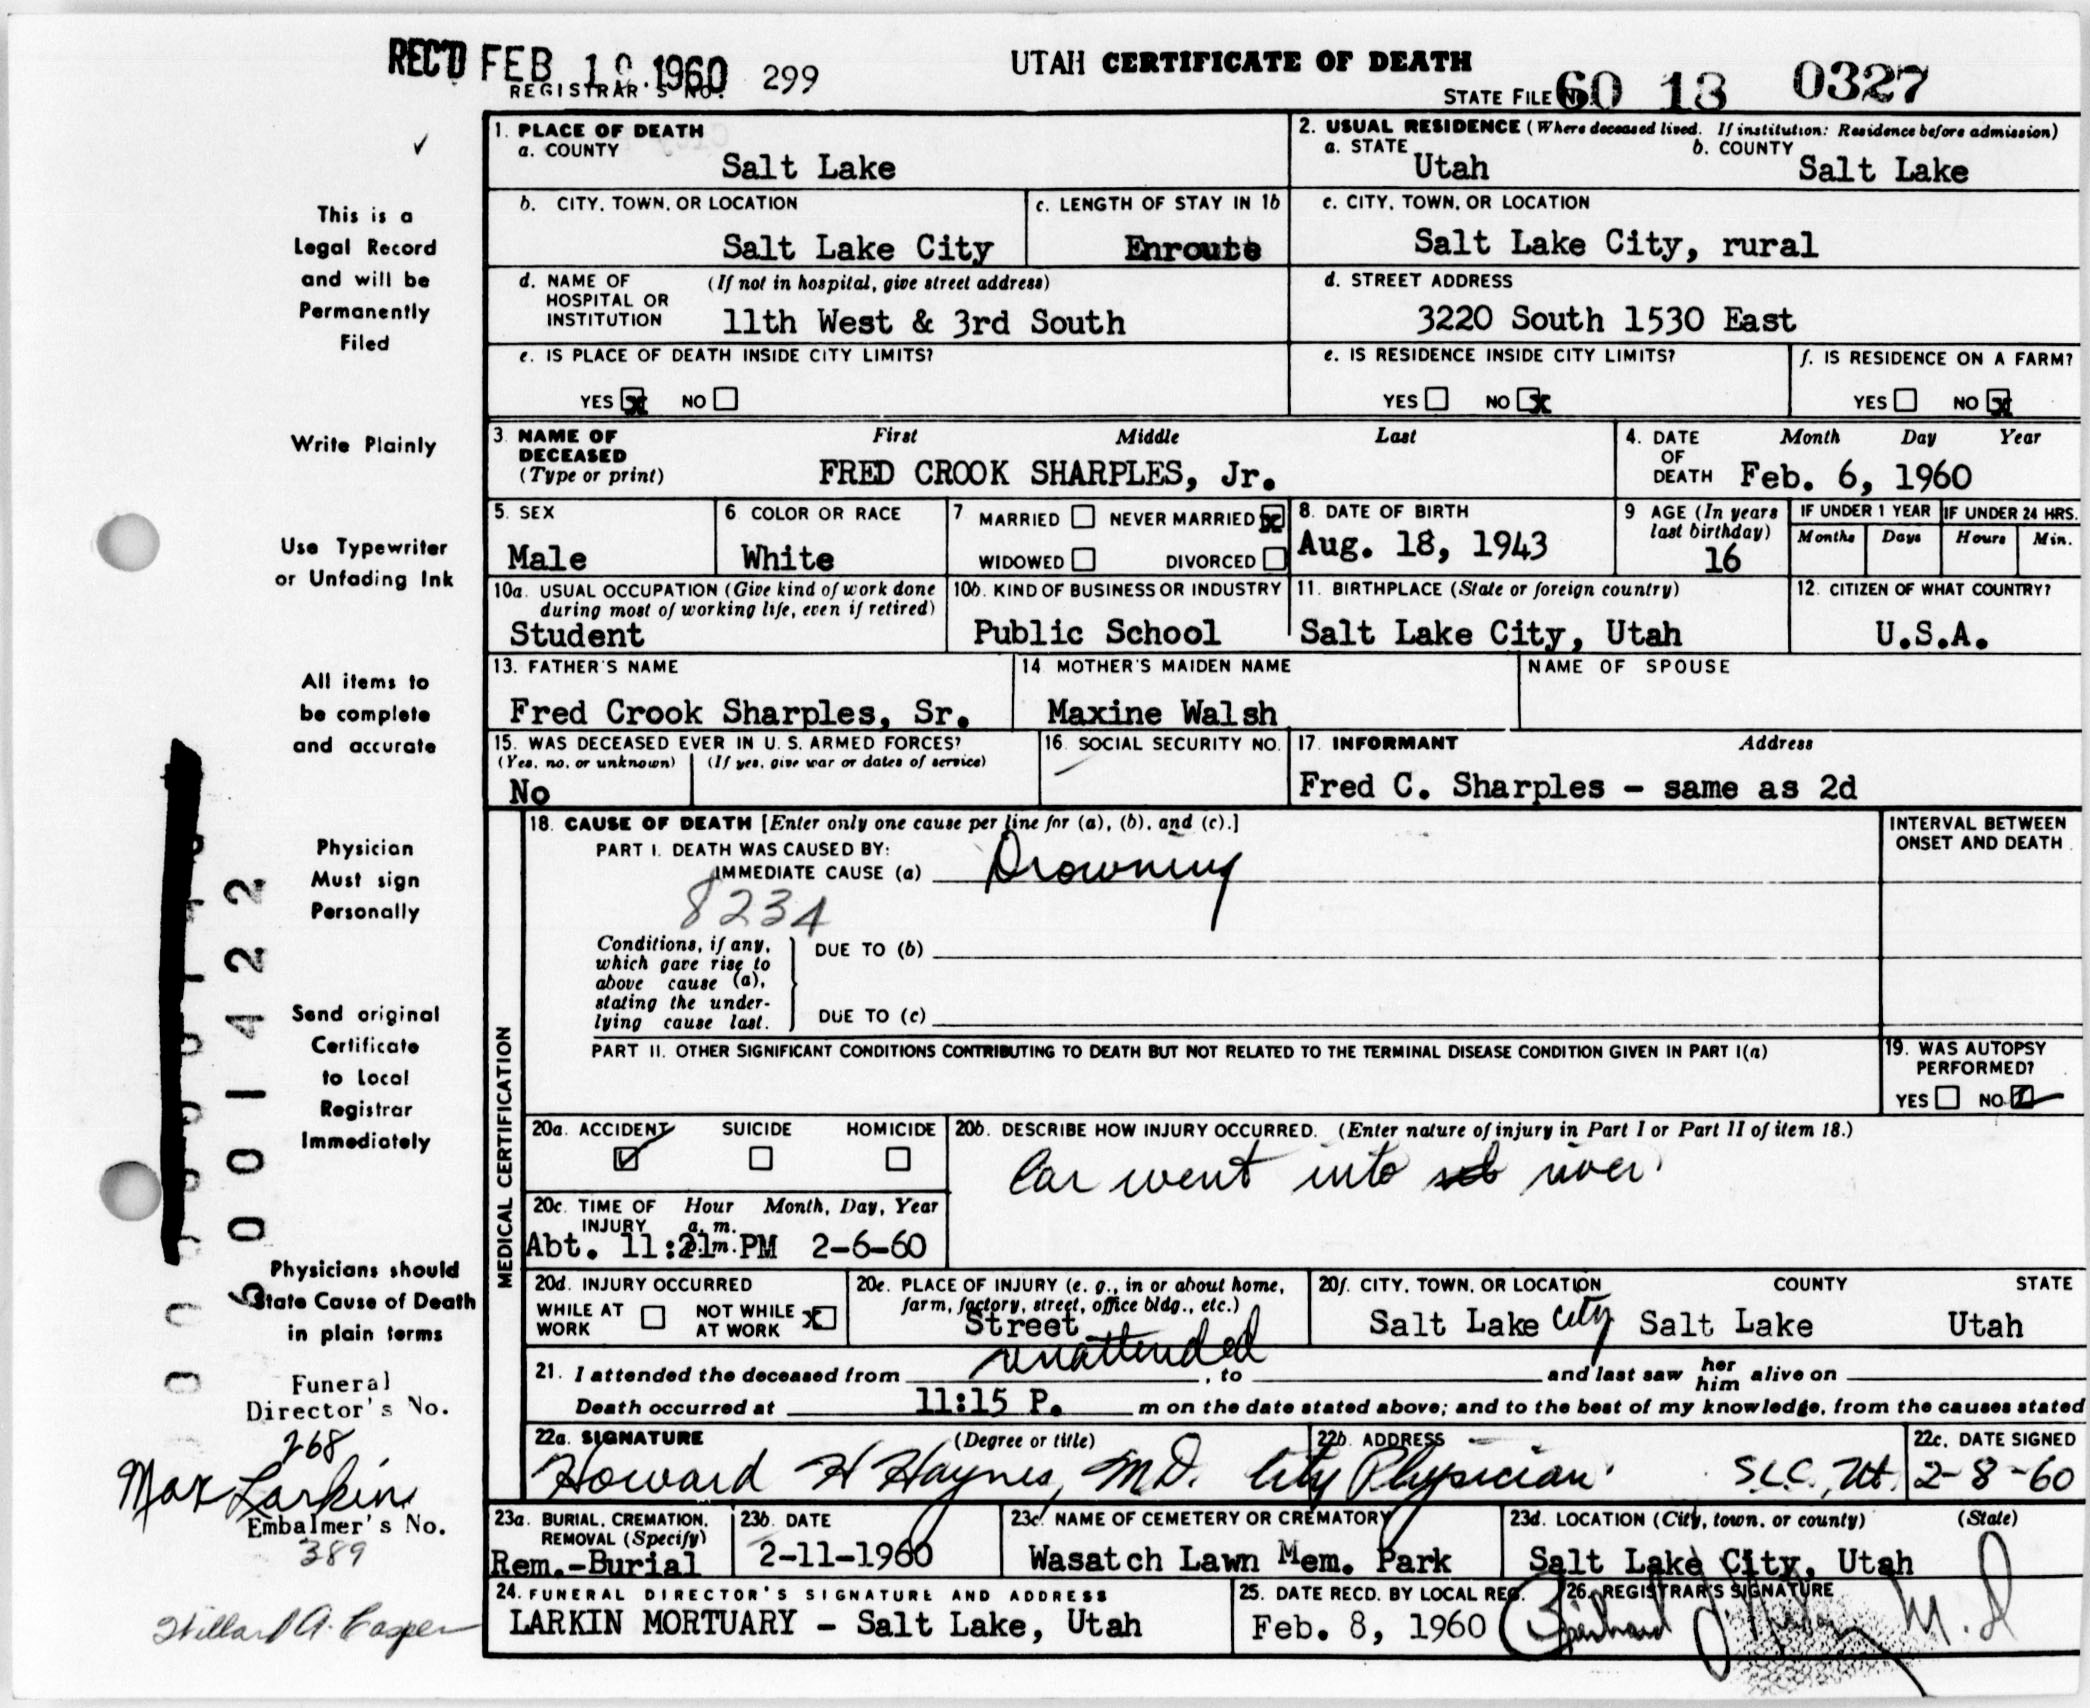 REC'D FEB 1 1960 299 UTAH CERTIFICATE OF DEATH
REGISTRAR'S NO. STATE FILE NO. 60 18 0327
✓
This is a
Legal Record
and will be
Permanently
Filed
Write Plainly
Use Typewriter
or Unfading Ink
All items to
be complete
and accurate
Physician
Must sign
Personally
Send original
Certificate
to Local
Registrar
Immediately
Physicians should
State Cause of Death
in plain terms
Funeral
Director's No.
268
Max Larkin
Embalmer's No.
389
Willard A. Casper
1. PLACE OF DEATH
a. COUNTY
Salt Lake
2. USUAL RESIDENCE (Where deceased lived. If institution: Residence before admission)
a. STATE b. COUNTY
Utah Salt Lake
b. CITY, TOWN, OR LOCATION
Salt Lake City
c. LENGTH OF STAY IN 1b
Enroute
c. CITY, TOWN, OR LOCATION
Salt Lake City, rural
d. NAME OF (If not in hospital, give street address)
HOSPITAL OR
INSTITUTION 11th West & 3rd South
d. STREET ADDRESS
3220 South 1530 East
e. IS PLACE OF DEATH INSIDE CITY LIMITS?
YES x NO
e. IS RESIDENCE INSIDE CITY LIMITS?
YES NO x
f. IS RESIDENCE ON A FARM?
YES NO x
3. NAME OF First Middle Last
DECEASED
(Type or print) FRED CROOK SHARPLES, Jr.
4. DATE Month Day Year
OF
DEATH Feb. 6, 1960
5. SEX
Male
6. COLOR OR RACE
White
7 MARRIED NEVER MARRIED x
WIDOWED DIVORCED
8. DATE OF BIRTH
Aug. 18, 1943
9 AGE (In years
last birthday)
16
IF UNDER 1 YEAR IF UNDER 24 HRS.
Months Days Hours Min.
10a. USUAL OCCUPATION (Give kind of work done
during most of working life, even if retired)
Student
10b. KIND OF BUSINESS OR INDUSTRY
Public School
11. BIRTHPLACE (State or foreign country)
Salt Lake City, Utah
12. CITIZEN OF WHAT COUNTRY?
U.S.A.
13. FATHER'S NAME
Fred Crook Sharples, Sr.
14 MOTHER'S MAIDEN NAME
Maxine Walsh
NAME OF SPOUSE
15. WAS DECEASED EVER IN U. S. ARMED FORCES?
(Yes, no, or unknown) (If yes, give war or dates of service)
No
16. SOCIAL SECURITY NO.
17. INFORMANT Address
Fred C. Sharples - same as 2d
MEDICAL CERTIFICATION
18. CAUSE OF DEATH [Enter only one cause per line for (a), (b), and (c).]
PART I. DEATH WAS CAUSED BY:
IMMEDIATE CAUSE (a) Drowning
8234
Conditions, if any,
which gave rise to
above cause (a),
stating the under-
lying cause last.
DUE TO (b)
DUE TO (c)
INTERVAL BETWEEN
ONSET AND DEATH
PART II. OTHER SIGNIFICANT CONDITIONS CONTRIBUTING TO DEATH BUT NOT RELATED TO THE TERMINAL DISEASE CONDITION GIVEN IN PART I(a)
19. WAS AUTOPSY
PERFORMED?
YES NO ✓
20a. ACCIDENT SUICIDE HOMICIDE
✓
20b. DESCRIBE HOW INJURY OCCURRED. (Enter nature of injury in Part I or Part II of item 18.)
Car went into river
20c. TIME OF Hour Month, Day, Year
INJURY a. m.
p. m.
Abt. 11:21 PM 2-6-60
20d. INJURY OCCURRED
WHILE AT NOT WHILE x
WORK AT WORK
20e. PLACE OF INJURY (e. g., in or about home,
farm, factory, street, office bldg., etc.)
Street
20f. CITY, TOWN, OR LOCATION COUNTY STATE
Salt Lake City Salt Lake Utah
21. I attended the deceased from unattended, to and last saw her him alive on
Death occurred at 11:15 P. m on the date stated above; and to the best of my knowledge, from the causes stated
22a. SIGNATURE (Degree or title)
Howard H Haynes, M.D. City Physician
22b. ADDRESS
S.L.C., Ut.
22c. DATE SIGNED
2-8-60
23a. BURIAL, CREMATION,
REMOVAL (Specify)
Rem.-Burial
23b. DATE
2-11-1960
23c. NAME OF CEMETERY OR CREMATORY
Wasatch Lawn Mem. Park
23d. LOCATION (City, town, or county) (State)
Salt Lake City, Utah
24. FUNERAL DIRECTOR'S SIGNATURE AND ADDRESS
LARKIN MORTUARY - Salt Lake, Utah
25. DATE RECD. BY LOCAL REG.
Feb. 8, 1960
26. REGISTRAR'S SIGNATURE
M.D
6001422